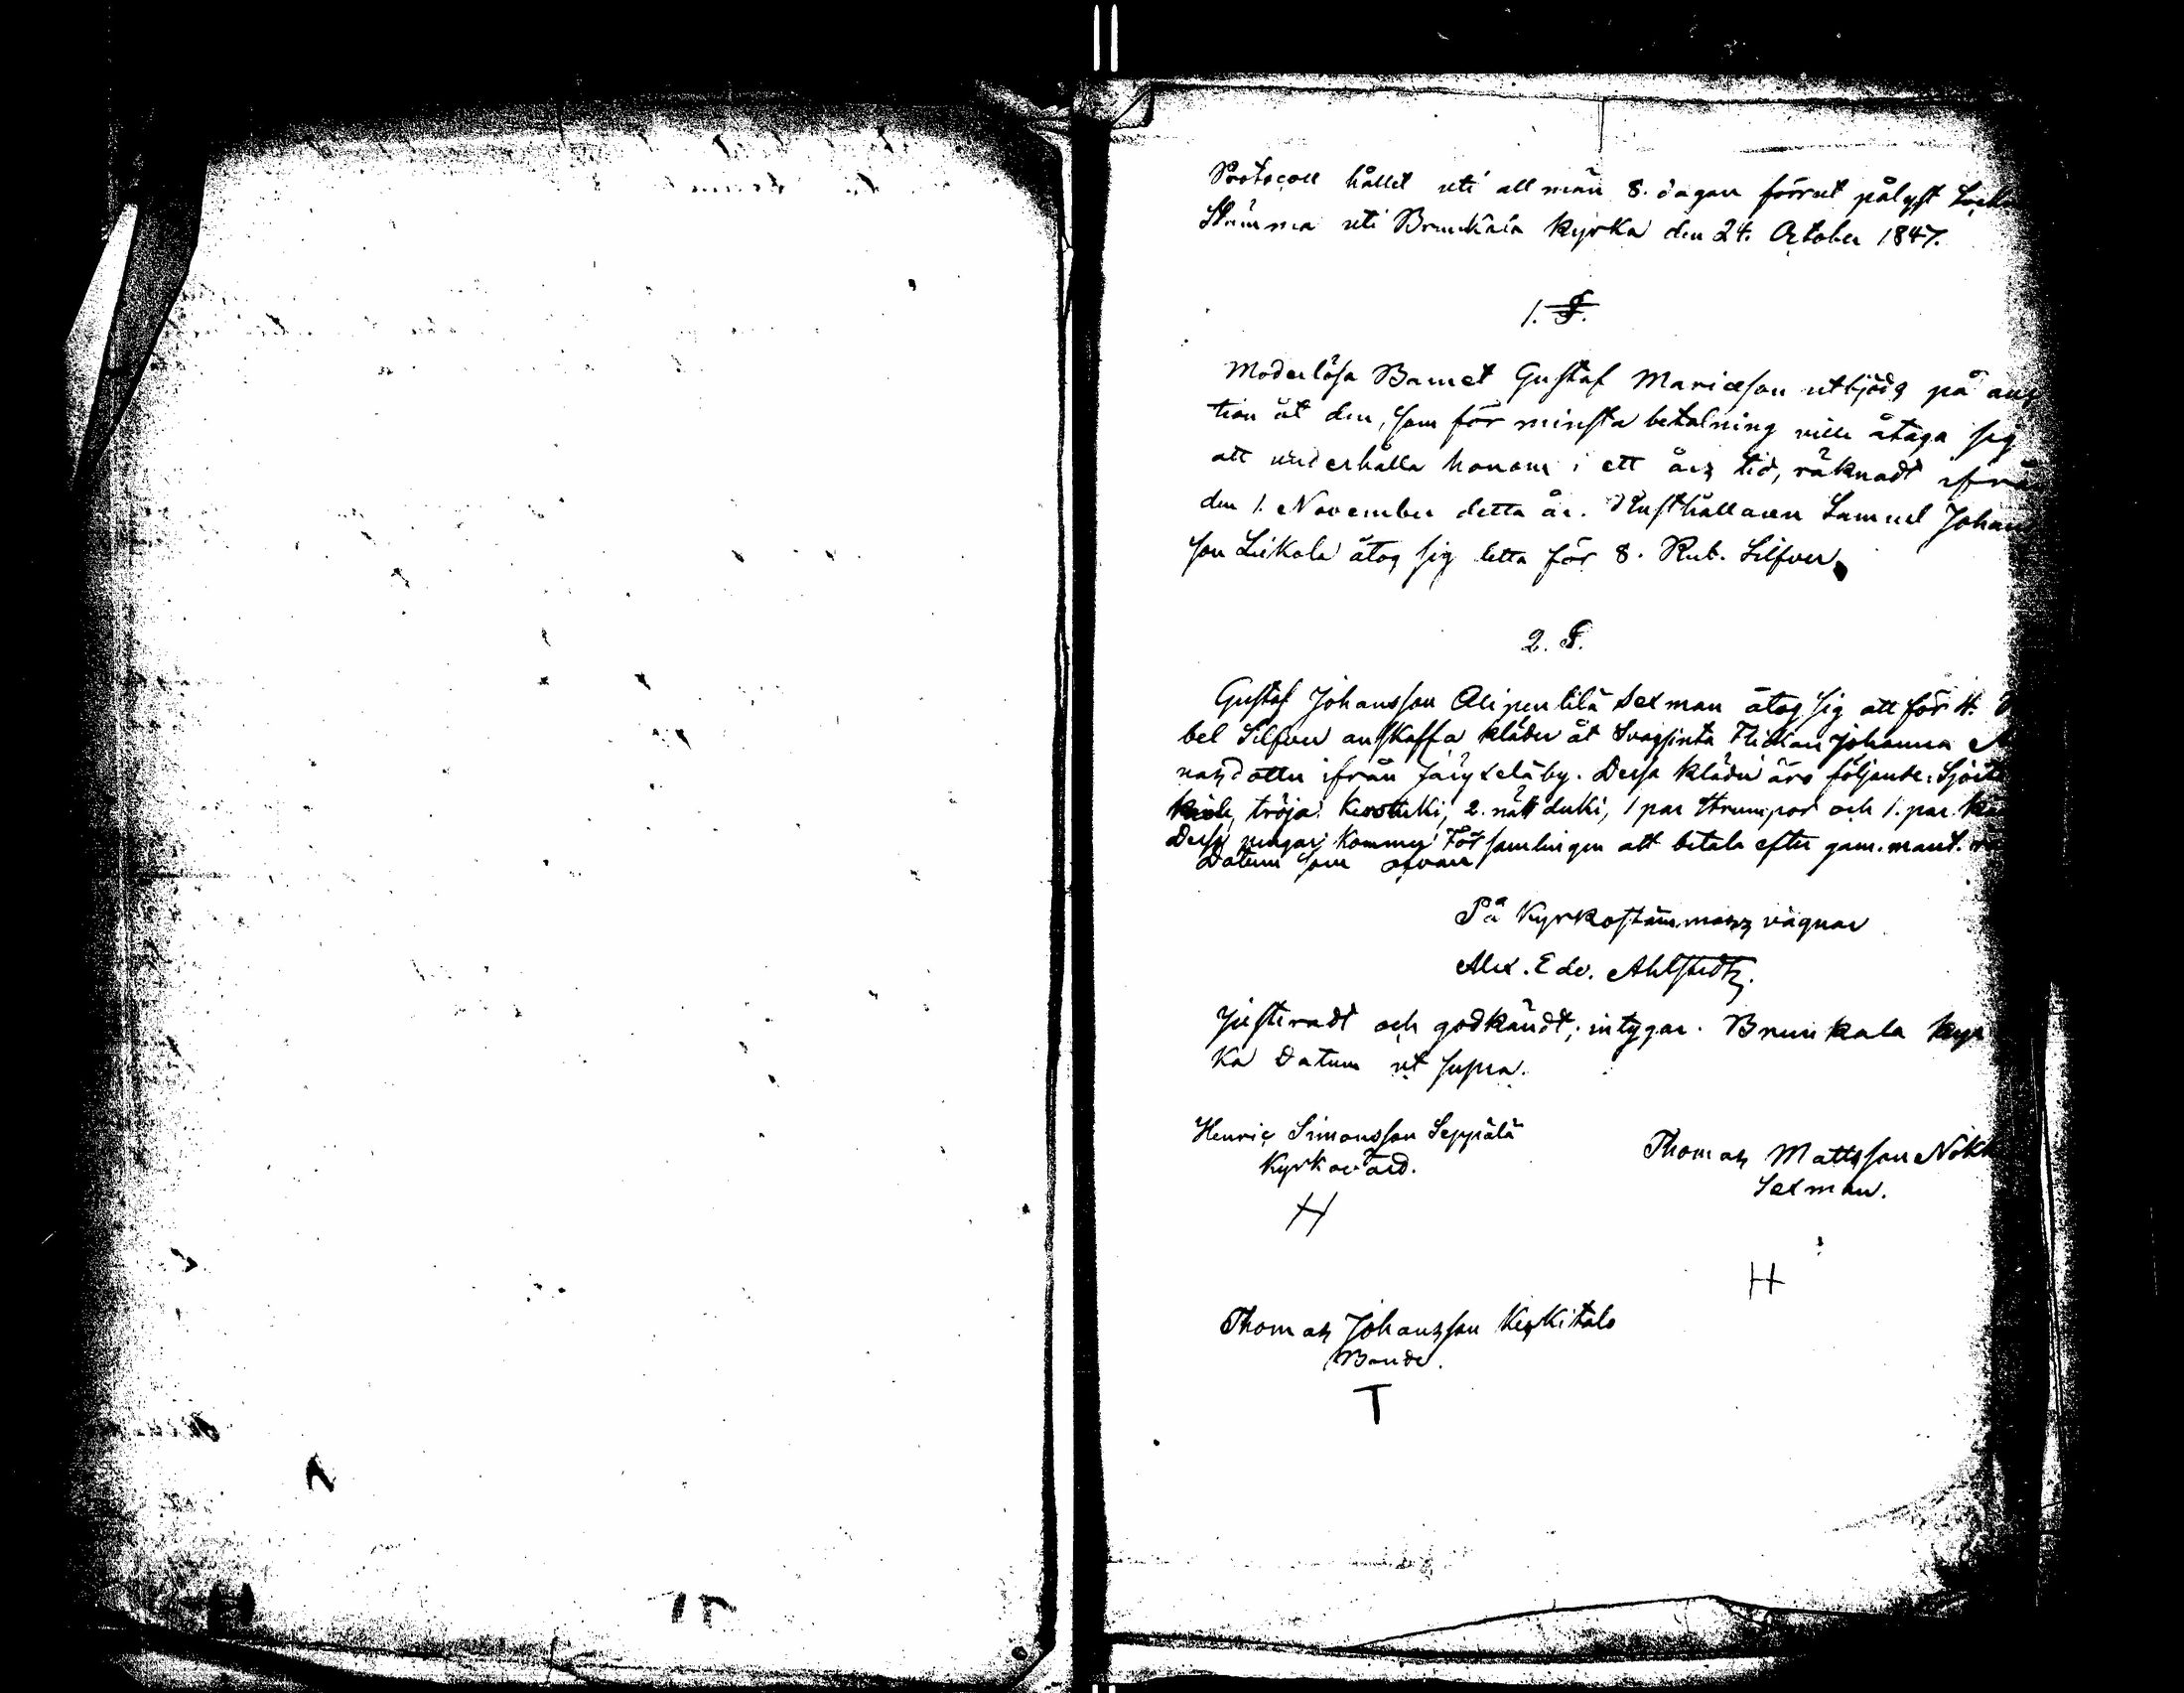 Protocoll hållet uti allmän 8. dagar förrut pålyst Socke
Stämma uti Brunkala kyrka den 24. October 1847.
1. §.
Moderlösa Barnet Gustaf Mariæson utbjöds på auc
tion åt den, som för minsta betalning ville åtaga sig
att underhålla honom i ett års tid, räknadt ifrån
den 1. November detta år. Rusthållaren Samuel Johan
son Liukola åtog sig detta för 8. Rub. Silfver.
2. §.
Gustaf Johansson Alipentilä Sexman åtog sig att för 4.
bel Silfver anskaffa kläder åt Svagsinta Flickan Johanna
nasdotter ifrån Järyxeläby. Dessa kläder äro följande:
tröja, 2. duki, 1 par strumpor och 1. par
Dessa pengar kommer Församlingen att betala efter gam. mant.
Datum som ofvan
På Kyrkostämmans vägnar
Alex. Edv. Ahlstedt.
Justeradt och godkändt, intygar. Brunkala kyr
ka Datum ut supra.
Henric Simonsson Seppälä
Kyrkovärd.
H
Thomas Mattsson Nokk
Sexman.
H
Thomas Johansson Keskitalo
Bonde.
T